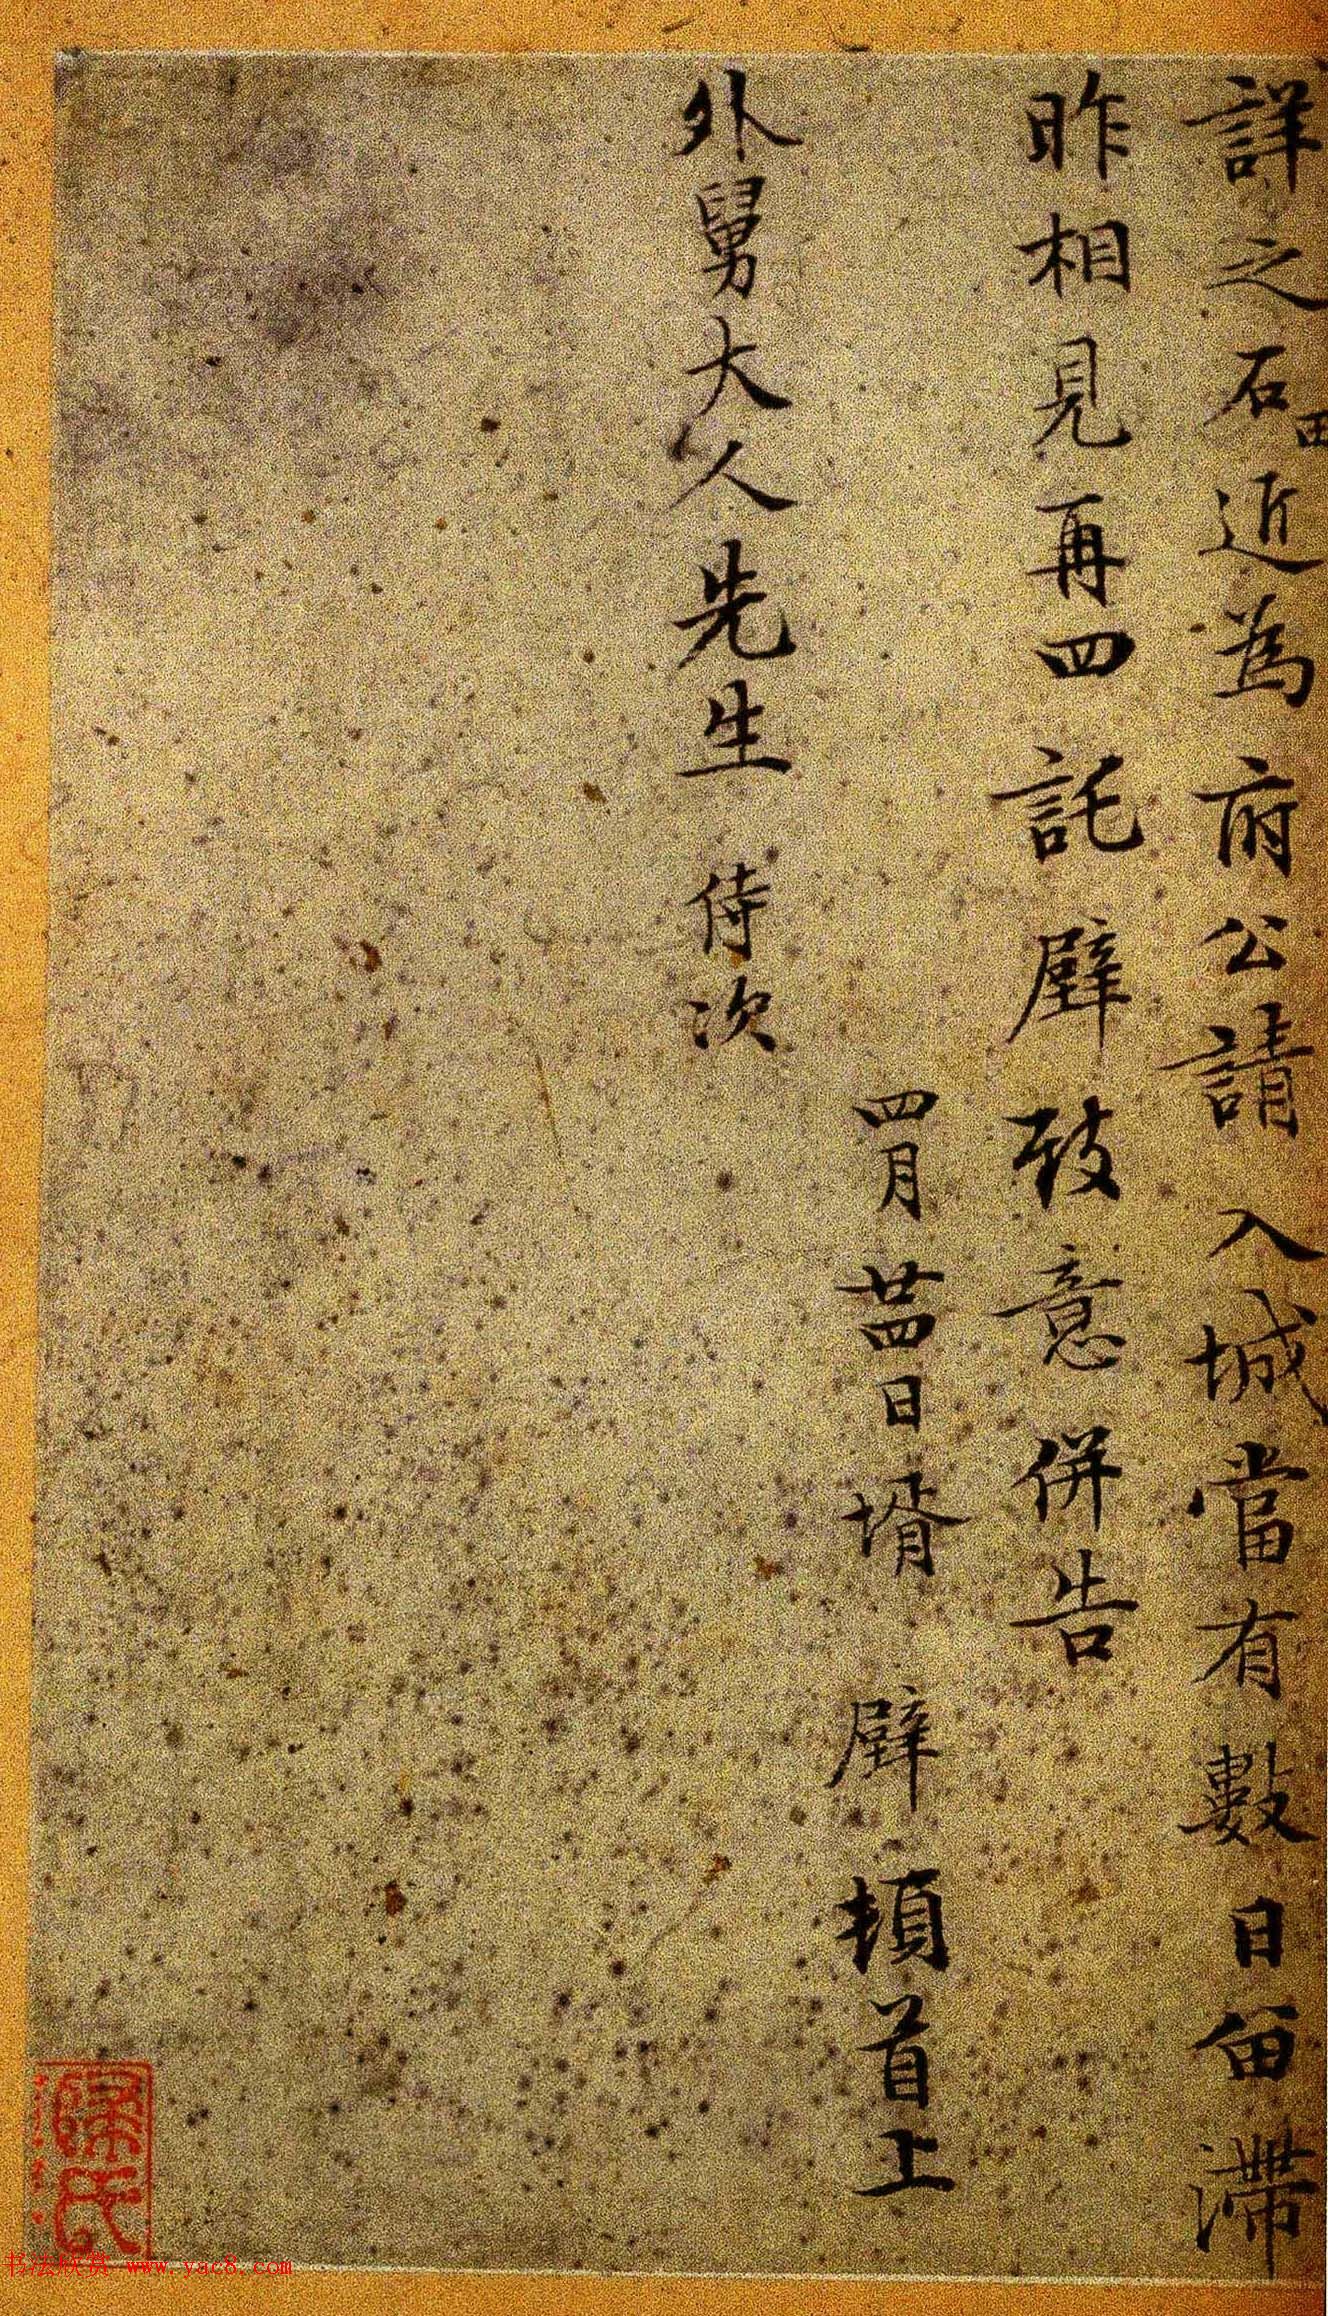 詳之石田近為府公請入城當有數日留滯
昨相見再四託壁致意併告
四月廿四日壻壁頓首上
外舅大人先生侍次
书法欣赏 www.yac8.com